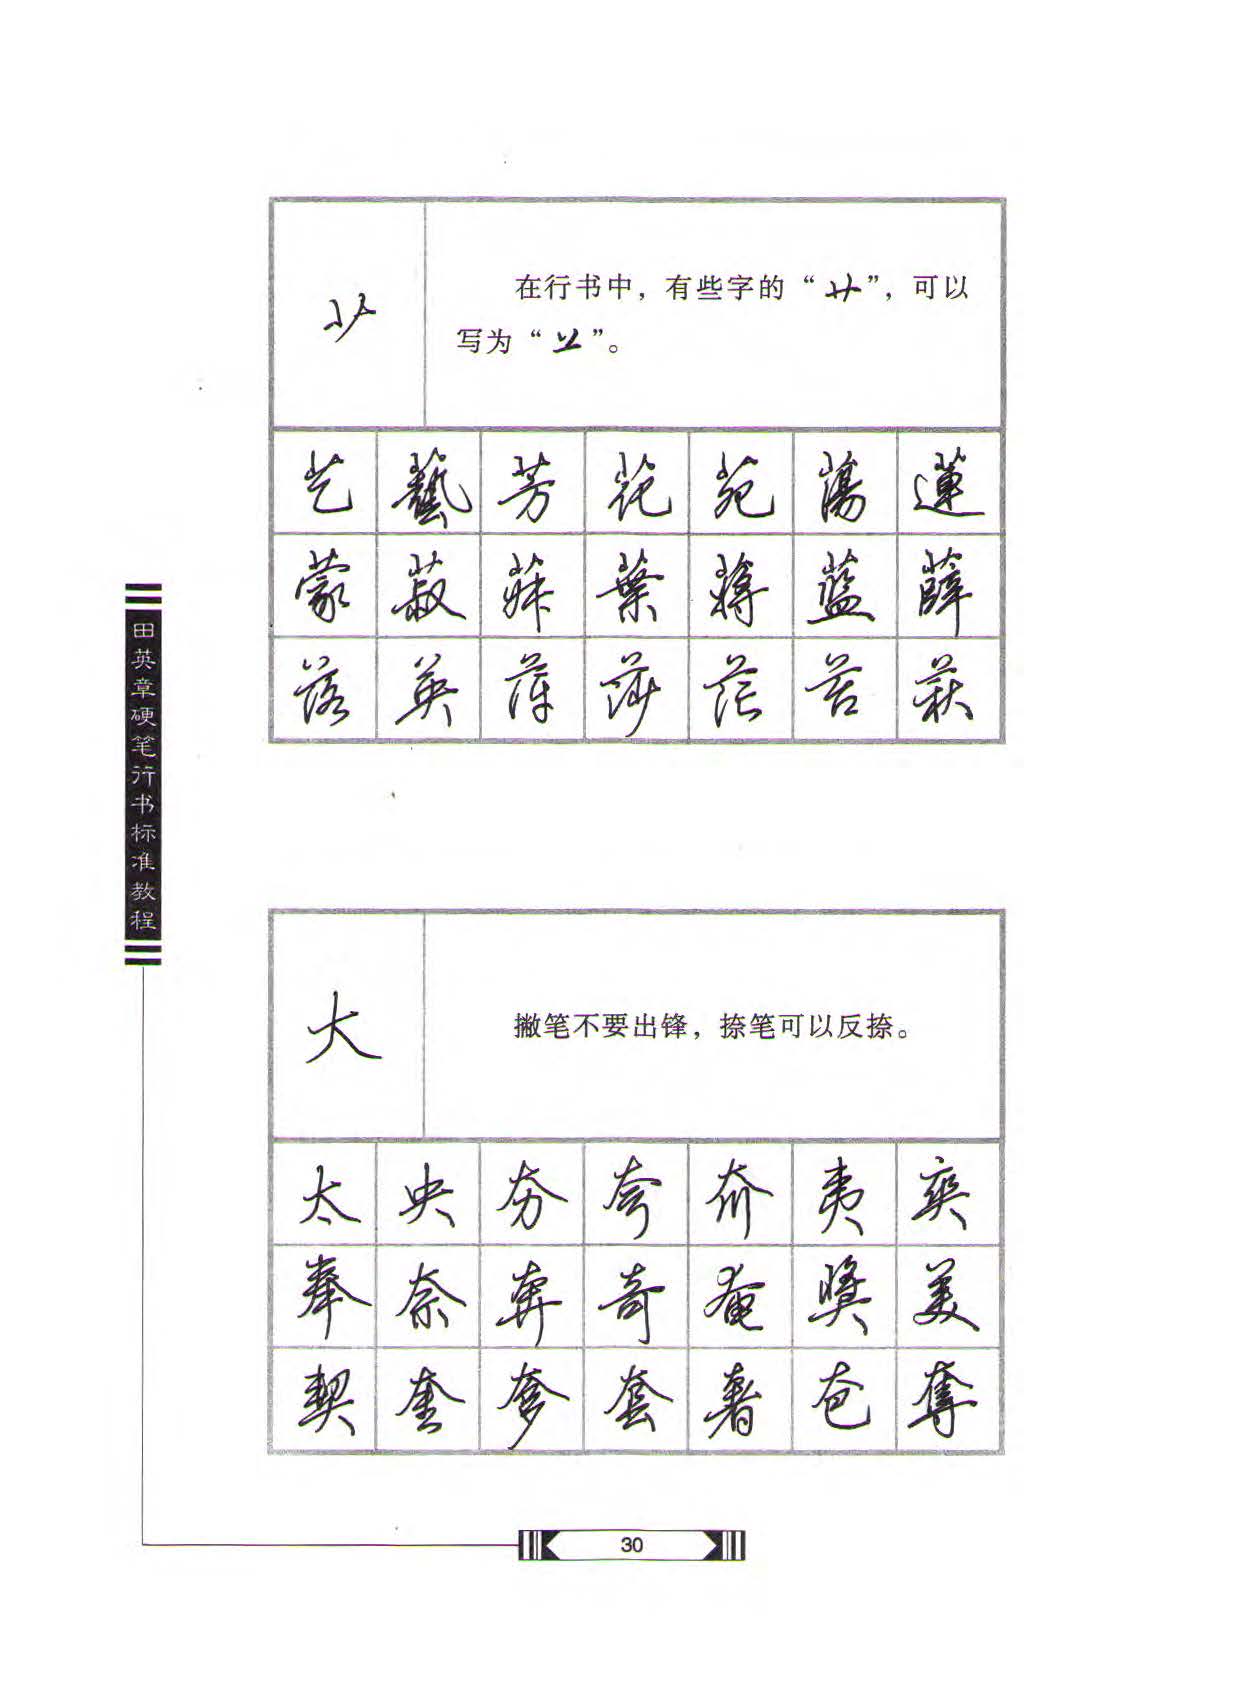 艹
在行书中，有些字的“艹”，可以
写为“䒑”。
艺 藝 芳 花 苑 蕩 蓮
蒙 菽 葉 蔣 藍 薛
落 英 萍 莎 茫 苦 荻
田英章硬笔行书标准教程
大
撇笔不要出锋，捺笔可以反捺。
太 央 夯 夸 夼 夷 爽
奉 奈 奔 奇 奄 獎 美
契 奎 奓 套 奢 夿 奪
30